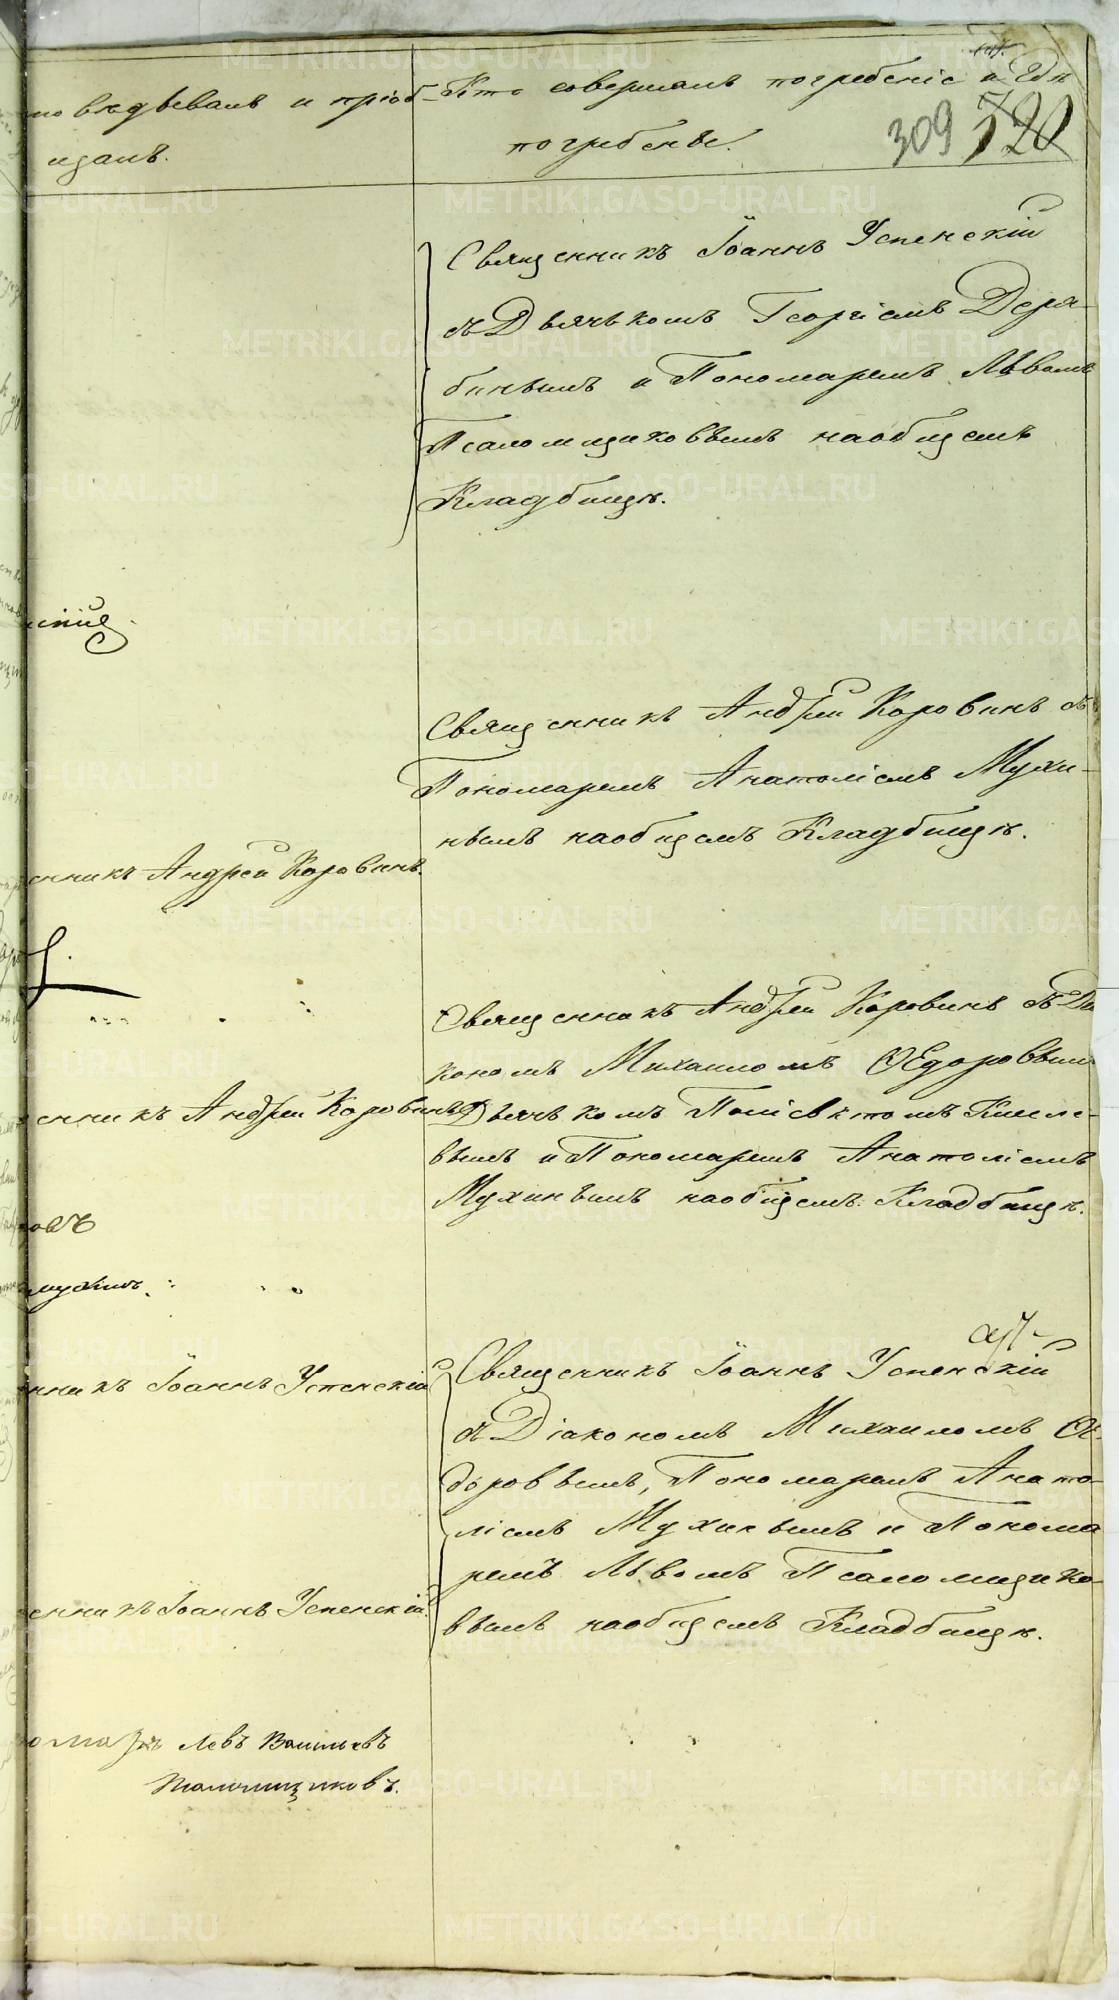 повѣдывалъ и пріоб-
щалъ.
Кто совершалъ погребеніе и гдѣ
погребены.
309 520
Священникъ Іоаннъ Успенскій
съ Дьячькомъ Георгіемъ Деря-
бинымъ и Пономаремъ Львомъ
Псаломщиковымъ на общемъ
Кладбищѣ.
Священникъ Андрей Коровинъ съ
Пономаремъ Анатоліемъ Мухи-
нымъ на общемъ Кладбищѣ.
енникъ Андрей Коровинъ.
Священникъ Андрей Коровинъ съ Діа
кономъ Михаиломъ Ѳедоровым
Дьячькомъ Поліевктомъ Кисле-
вымъ и Пономаремъ Анатоліемъ
Мухинымъ на общемъ Кладбищѣ.
енникъ Андрей Коровинъ
ровъ
Мухинъ.
Священникъ Іоаннъ Успенскій
съ Діакономъ Михаиломъ Ѳе-
доровымъ, Пономаремъ Анато-
ліемъ Мухинымъ и Понома
ремъ Львомъ Псаломщико-
вымъ на общемъ Кладбищѣ.
нникъ Іоаннъ Успенскій
енникъ Іоаннъ Успенскій.
омарь Левъ Васильевъ
Псаломщиковъ.
METRIKI.GASO-URAL.RU